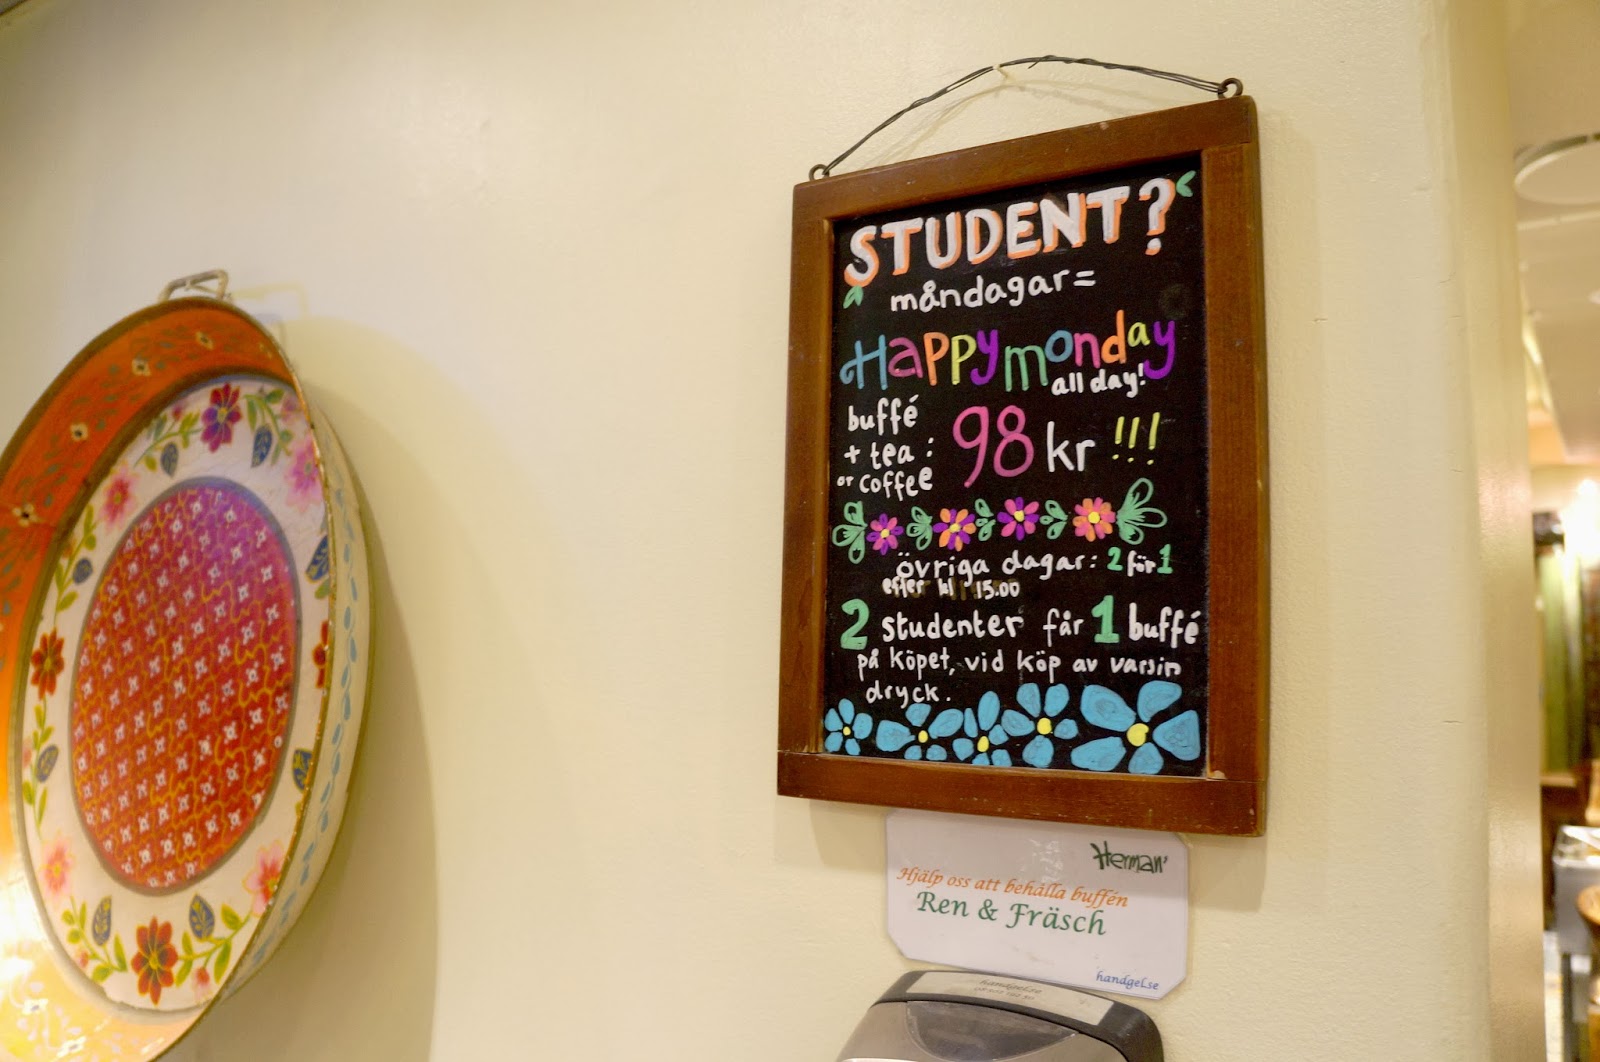 STUDENT?
måndagar=
Happy monday
all day!
buffé
+ tea :
or coffee
98 kr !!!
övriga dagar: 2 för 1
efter kl 15.00
2 studenter får 1 buffé
på köpet, vid köp av varsin
dryck.
Herman'
Hjälp oss att behålla buffén
Ren & Fräsch
handgel.se
handgel.se